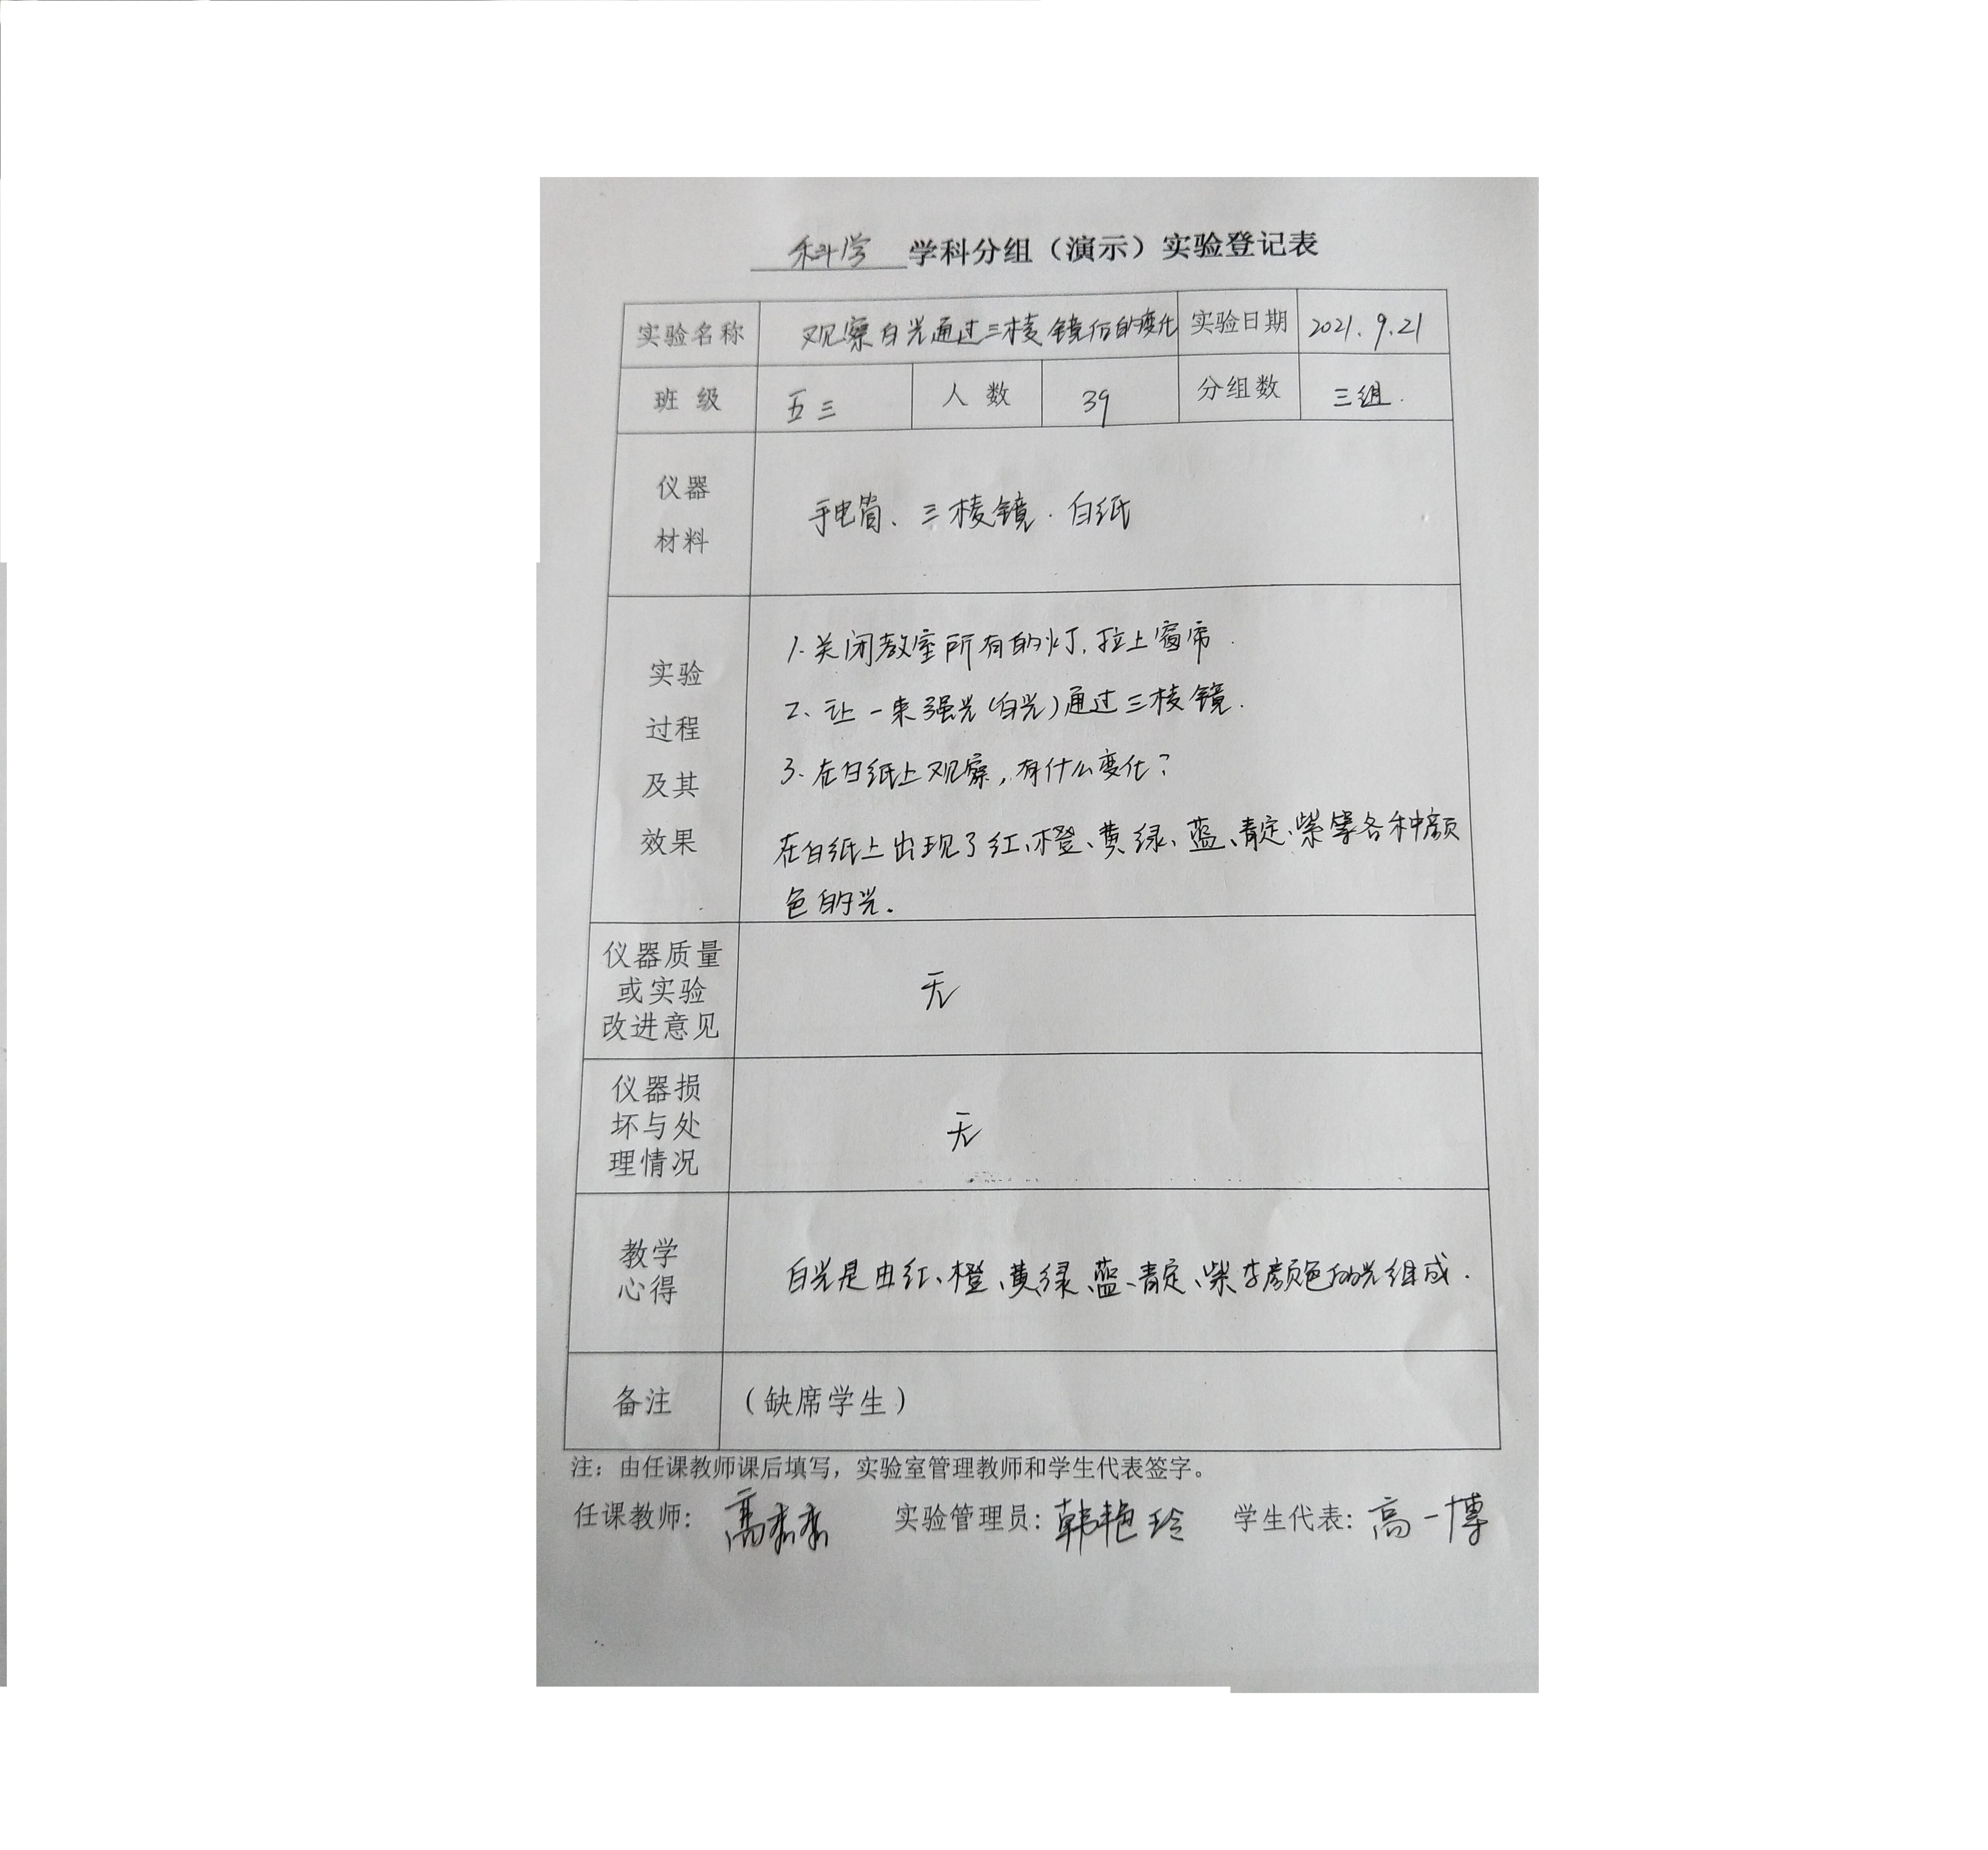 科学 学科分组（演示）实验登记表
实验名称 观察白光通过三棱镜后的变化 实验日期 2021.9.21
班 级 五三 人 数 39 分组数 三组.
仪器
材料
手电筒、三棱镜.白纸
实验
过程
及其
效果
1.关闭教室所有的灯,拉上窗帘.
2、让一束强光(白光)通过三棱镜.
3.在白纸上观察,有什么变化?
在白纸上出现了红、橙、黄、绿、蓝、靛、紫等各种颜
色的光.
仪器质量
或实验
改进意见
无
仪器损
坏与处
理情况
无
教学
心得
白光是由红、橙、黄、绿、蓝、靛、紫 颜色的光组成.
备注 （缺席学生）
注：由任课教师课后填写，实验室管理教师和学生代表签字。
任课教师: 高 实验管理员: 韩艳玲 学生代表: 高一博